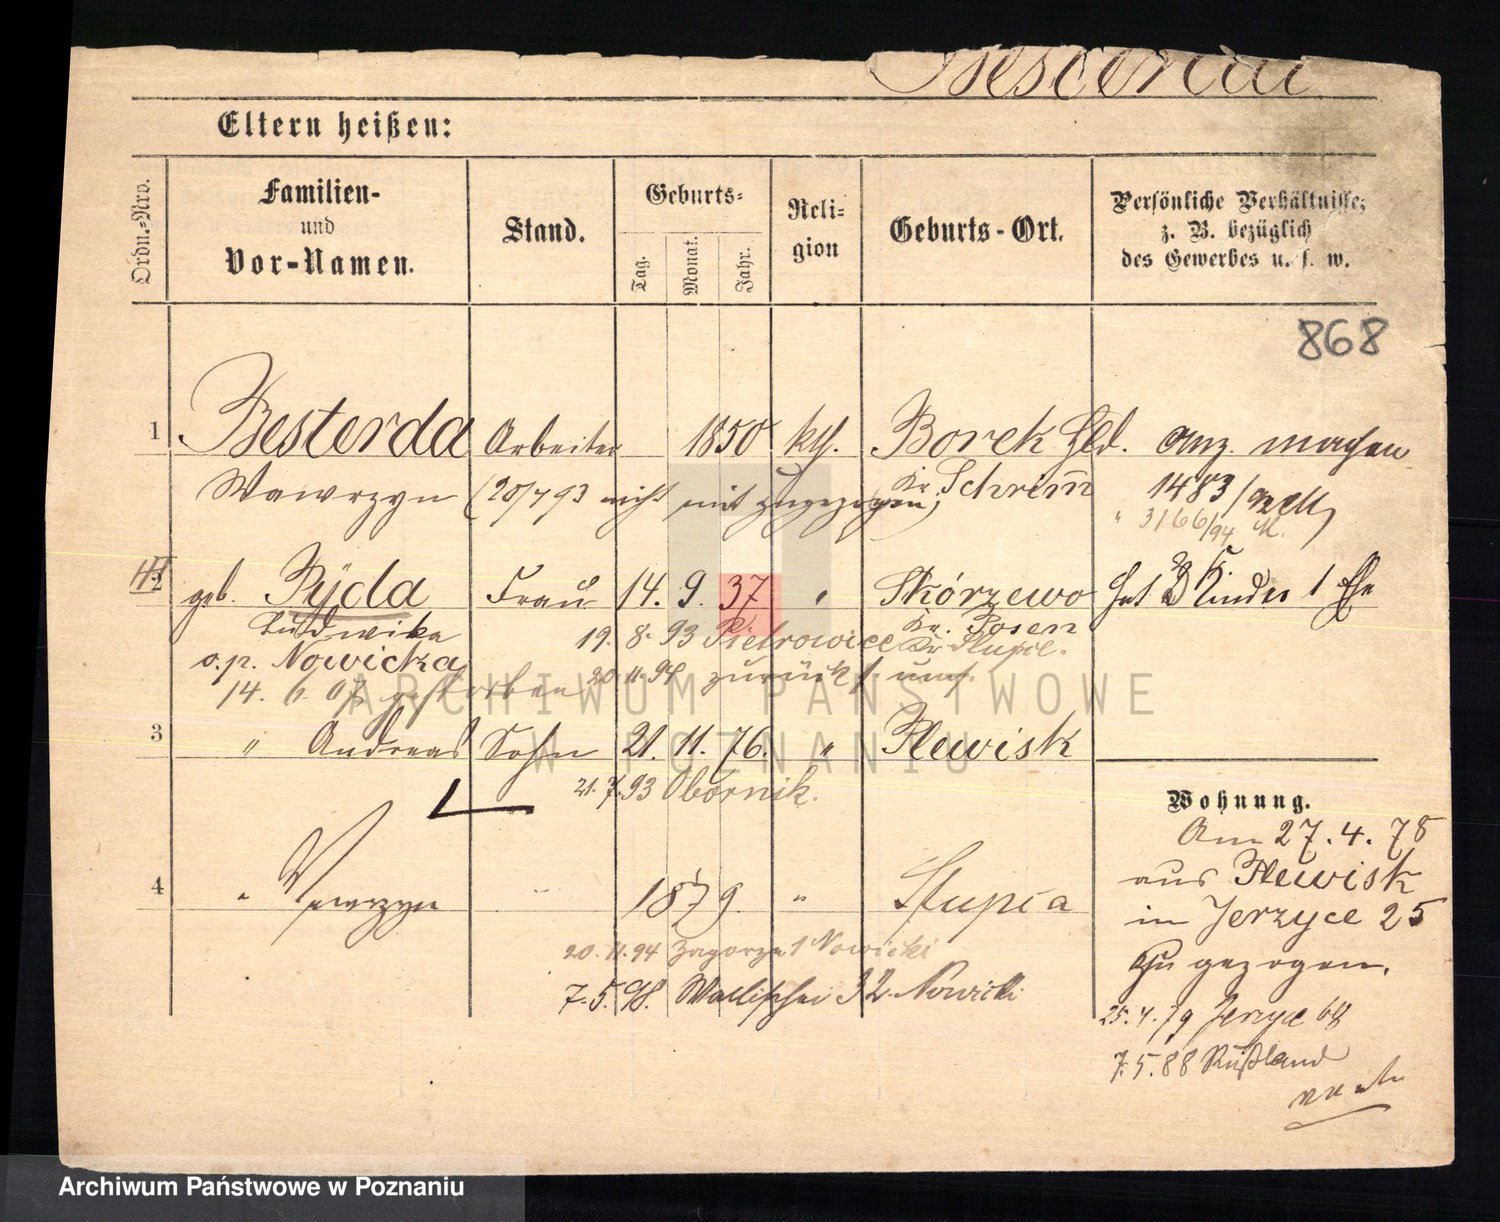 Besterda
Eltern heißen:
Ordn.-Nro.
Familien-
und
Vor-Namen.
Stand.
Geburts-
Tag.
Monat.
Jahr.
Reli-
gion
Geburts-Ort.
Persönliche Verhältnisse;
z. B. bezüglich
des Gewerbes u. s. w.
868
1 Besterda Arbeiter 1850 kth. Borek Hld.
Wawrzyn (20/7 93 nicht mit zugezogen) Kr. Schrim̄
1483/92
3166/94 M.
2 geb. Ryda Frau 14. 9. 37 " Skórzewo hat Kinder 1 Ehe
Ludwika Kr. Posen
19. 8. 93 Pietrowice Kr.
o.p. Nowicka 20. 11. 94 zurück
14. 6. 07 gestorben
3 " Andreas Sohn 21. 11. 76. " Plewisk
21. 7. 93 Obornik.
Wohnung.
Am 27. 4. 78
aus Plewisk
in Jerzyce 25
zu gezogen.
4 " Wawrzyn 1879. " Slupia
20. 11. 94 Zagorze 1 Nowicki
7. 5. 98. Wallischei 32 Nowicki
25. 4. 79 Jerzyce 68
7. 5. 88 Rußland
ARCHIWUM PAŃSTWOWE
W POZNANIU
Archiwum Państwowe w Poznaniu